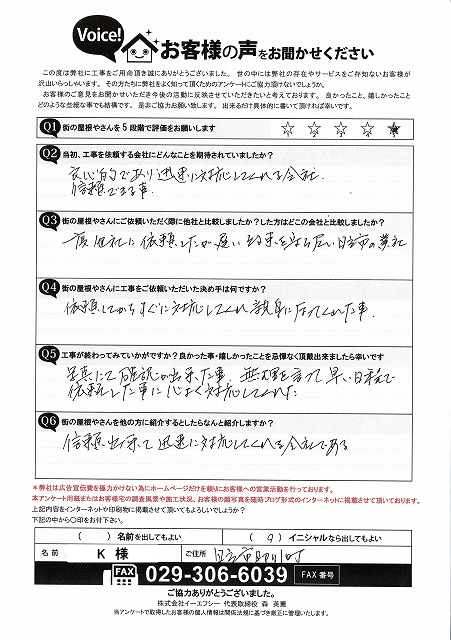 Voice!
お客様の声をお聞かせください
この度は弊社に工事をご用命頂き誠にありがとうございました。 世の中には弊社の存在やサービスをご存知ないお客様が
沢山いらっしゃいます。 その方たちに弊社をよく知って頂くためのアンケートにご協力頂けないでしょうか。
お客様のご意見をお聞かせいただき今後の活動に反映させていただきたいと考えております。 良かったこと、嬉しかったこと
どのような些細な事でも結構です。 是非ご協力お願い致します。 出来るだけ具体的に書いて頂ければ幸いです。
Q1 街の屋根やさんを5段階で評価をお願いします
☆ ☆ ☆ ☆ ★
Q2 当初、工事を依頼する会社にどんなことを期待されていましたか?
良心的であり迅速に対応してくれる会社
信頼できる事
Q3 街の屋根やさんにご依頼いただく際に他社と比較しましたか?した方はどこの会社と比較しましたか?
依頼したが遅い 約束を守らない 日立市の業社
Q4 街の屋根やさんに工事をご依頼いただいた決め手は何ですか?
依頼してからすぐに対応してくれ親身になってくれた事
Q5 工事が終わってみていかがですか?良かった事・嬉しかったことを忌憚なく頂戴出来ましたら幸いです
写真にて確認が出来た事 無理を言って早い日程で
依頼した事に心よく対応してくれた
Q6 街の屋根やさんを他の方に紹介するとしたらなんと紹介しますか?
信頼出来て迅速に対応してくれる会社である
*弊社は広告宣伝費を極力かけない為にホームページだけを頼りにお客様への営業活動を行っております。
本アンケート用紙またはお客様宅の調査風景や施工状況、お客様の顔写真を随時ブログ形式のインターネットに掲載させて頂いております。
上記内容をインターネットや印刷物に掲載させて頂いてもよろしいでしょうか?
下記の中から〇印をお付下さい。
( ) 名前を出してもよい
( ) イニシャルなら出してもよい
名前 K 様 ご住所 日立市
FAX 029-306-6039 FAX番号
ご協力ありがとうございました。
株式会社イーエフシー 代表取締役 森 英憲
当アンケートで取得したお客様の個人情報は関係法規に基づき厳正に管理いたします。